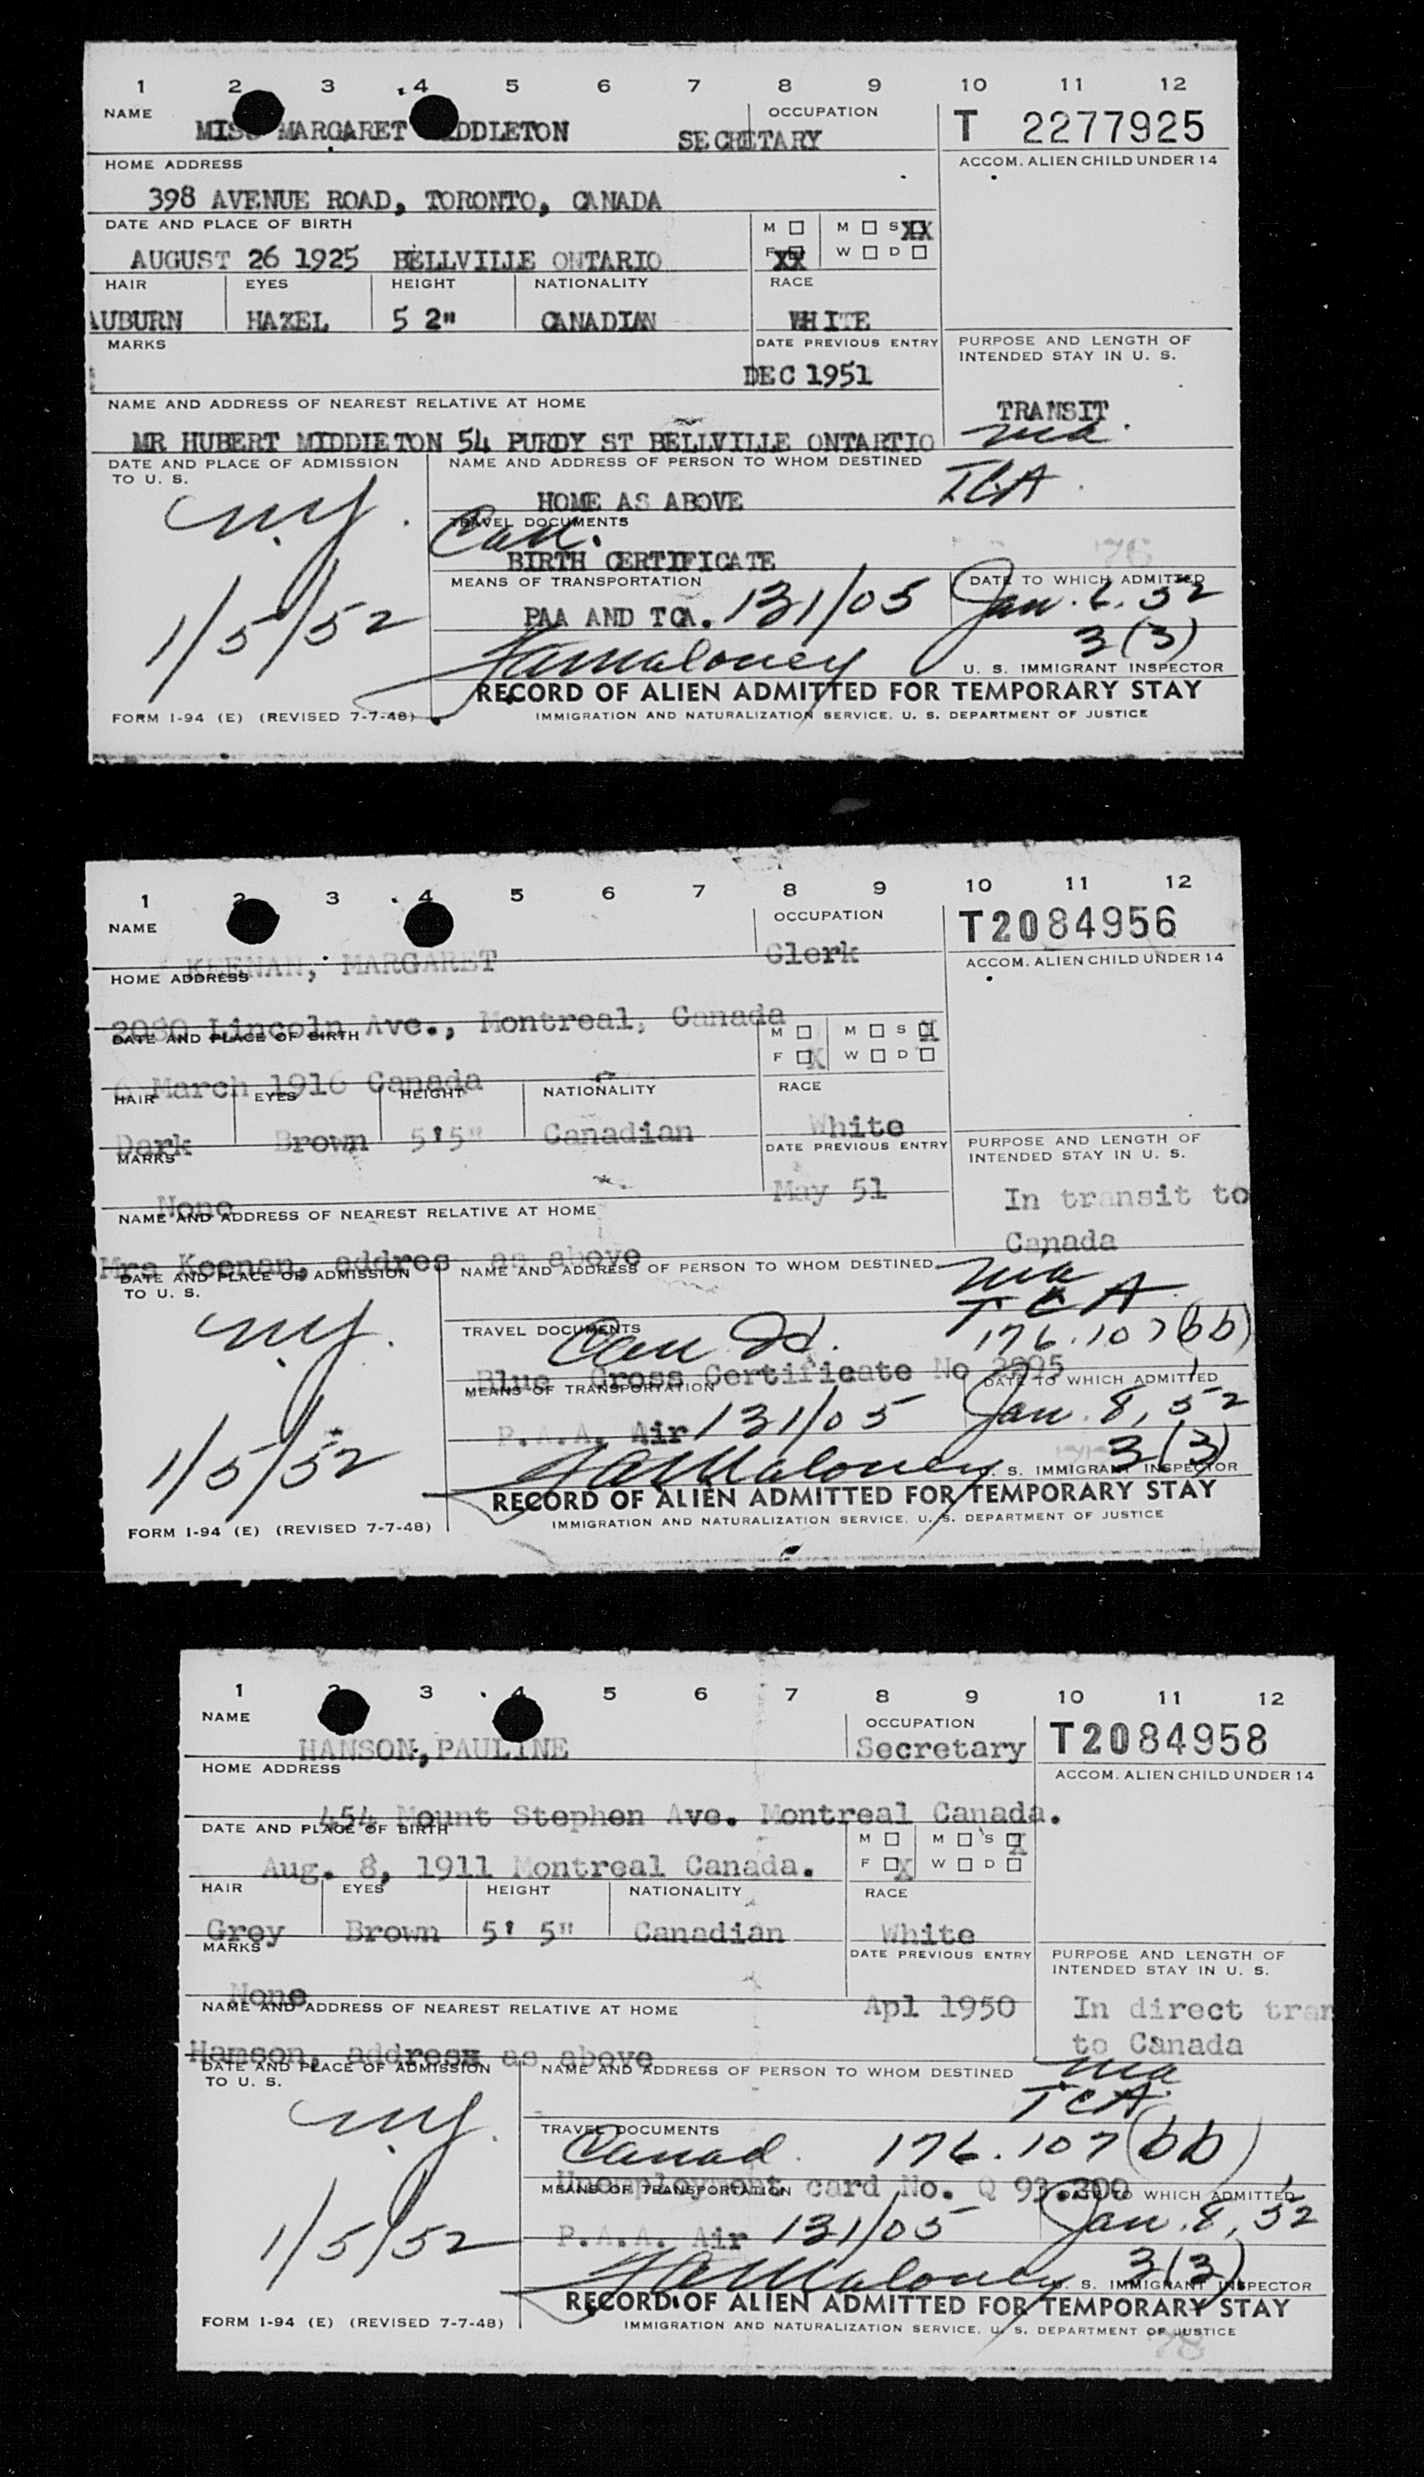 1 2 3 4 5 6 7 8 9 10 11 12
NAME OCCUPATION T 2277925
MISS MARGARET MIDDLETON SECRETARY
HOME ADDRESS ACCOM. ALIEN CHILD UNDER 14
398 AVENUE ROAD, TORONTO, CANADA
DATE AND PLACE OF BIRTH M M S XX
AUGUST 26 1925 BELLVILLE ONTARIO F XX W D
HAIR EYES HEIGHT NATIONALITY RACE
AUBURN HAZEL 5 2" CANADIAN WHITE
MARKS DATE PREVIOUS ENTRY PURPOSE AND LENGTH OF
INTENDED STAY IN U. S.
DEC 1951
NAME AND ADDRESS OF NEAREST RELATIVE AT HOME TRANSIT
MR HUBERT MIDDIETON 54 PURDY ST BELLVILLE ONTARTIO via
DATE AND PLACE OF ADMISSION NAME AND ADDRESS OF PERSON TO WHOM DESTINED TCA
TO U. S.
HOME AS ABOVE
N.Y. TRAVEL DOCUMENTS
Can.
BIRTH CERTIFICATE 76
MEANS OF TRANSPORTATION DATE TO WHICH ADMITTED
1/5/52 PAA AND TCA. 131/05 Jan. 6, 52
3(3)
FAMaloney U. S. IMMIGRANT INSPECTOR
RECORD OF ALIEN ADMITTED FOR TEMPORARY STAY
FORM I-94 (E) (REVISED 7-7-48) IMMIGRATION AND NATURALIZATION SERVICE, U. S. DEPARTMENT OF JUSTICE
1 2 3 4 5 6 7 8 9 10 11 12
NAME OCCUPATION T2084956
KEENAN, MARGARET Clerk
HOME ADDRESS ACCOM. ALIEN CHILD UNDER 14
2080 Lincoln Ave., Montreal, Canada
DATE AND PLACE OF BIRTH M M S X
F X W D
6 March 1916 Canada
HAIR EYES HEIGHT NATIONALITY RACE
Dark Brown 5'5" Canadian White
MARKS DATE PREVIOUS ENTRY PURPOSE AND LENGTH OF
INTENDED STAY IN U. S.
None May 51 In transit to
NAME AND ADDRESS OF NEAREST RELATIVE AT HOME
Canada
Mrs Keenan, addres as above
DATE AND PLACE OF ADMISSION NAME AND ADDRESS OF PERSON TO WHOM DESTINED via
TO U. S. TCA
N.Y. TRAVEL DOCUMENTS Can Id. 176.107(bb)
Blue Cross Certificate No
MEANS OF TRANSPORTATION DATE TO WHICH ADMITTED
1/5/52 P.A.A. Air 131/05 Jan. 8, 52
3(3)
FAMaloney U. S. IMMIGRANT INSPECTOR
RECORD OF ALIEN ADMITTED FOR TEMPORARY STAY
FORM I-94 (E) (REVISED 7-7-48) IMMIGRATION AND NATURALIZATION SERVICE, U. S. DEPARTMENT OF JUSTICE
1 2 3 4 5 6 7 8 9 10 11 12
NAME OCCUPATION T2084958
HANSON, PAULINE Secretary
HOME ADDRESS ACCOM. ALIEN CHILD UNDER 14
454 Mount Stephen Ave. Montreal Canada.
DATE AND PLACE OF BIRTH M M S X
Aug. 8, 1911 Montreal Canada. F X W D
HAIR EYES HEIGHT NATIONALITY RACE
Grey Brown 5' 5" Canadian White
MARKS DATE PREVIOUS ENTRY PURPOSE AND LENGTH OF
INTENDED STAY IN U. S.
None Apl 1950 In direct tran
NAME AND ADDRESS OF NEAREST RELATIVE AT HOME
to Canada
Hamson, address as above
DATE AND PLACE OF ADMISSION NAME AND ADDRESS OF PERSON TO WHOM DESTINED via
TO U. S. TCA
N.Y. TRAVEL DOCUMENTS
Canad. 176.107(bb)
Unemployment card No. Q 93.200
MEANS OF TRANSPORTATION DATE TO WHICH ADMITTED
1/5/52 P.A.A. Air 131/05 Jan. 8, 52
3(3)
FAMaloney U. S. IMMIGRANT INSPECTOR
RECORD OF ALIEN ADMITTED FOR TEMPORARY STAY
FORM I-94 (E) (REVISED 7-7-48) IMMIGRATION AND NATURALIZATION SERVICE, U. S. DEPARTMENT OF JUSTICE
78